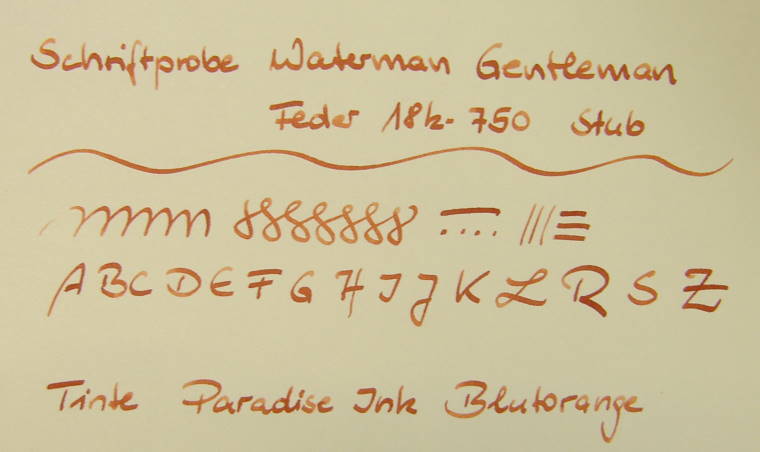 Schriftprobe Waterman Gentleman
Feder 18k-750 Stub
A B C D E F G H I J K L R S Z
Tinte Paradise Ink Blutorange